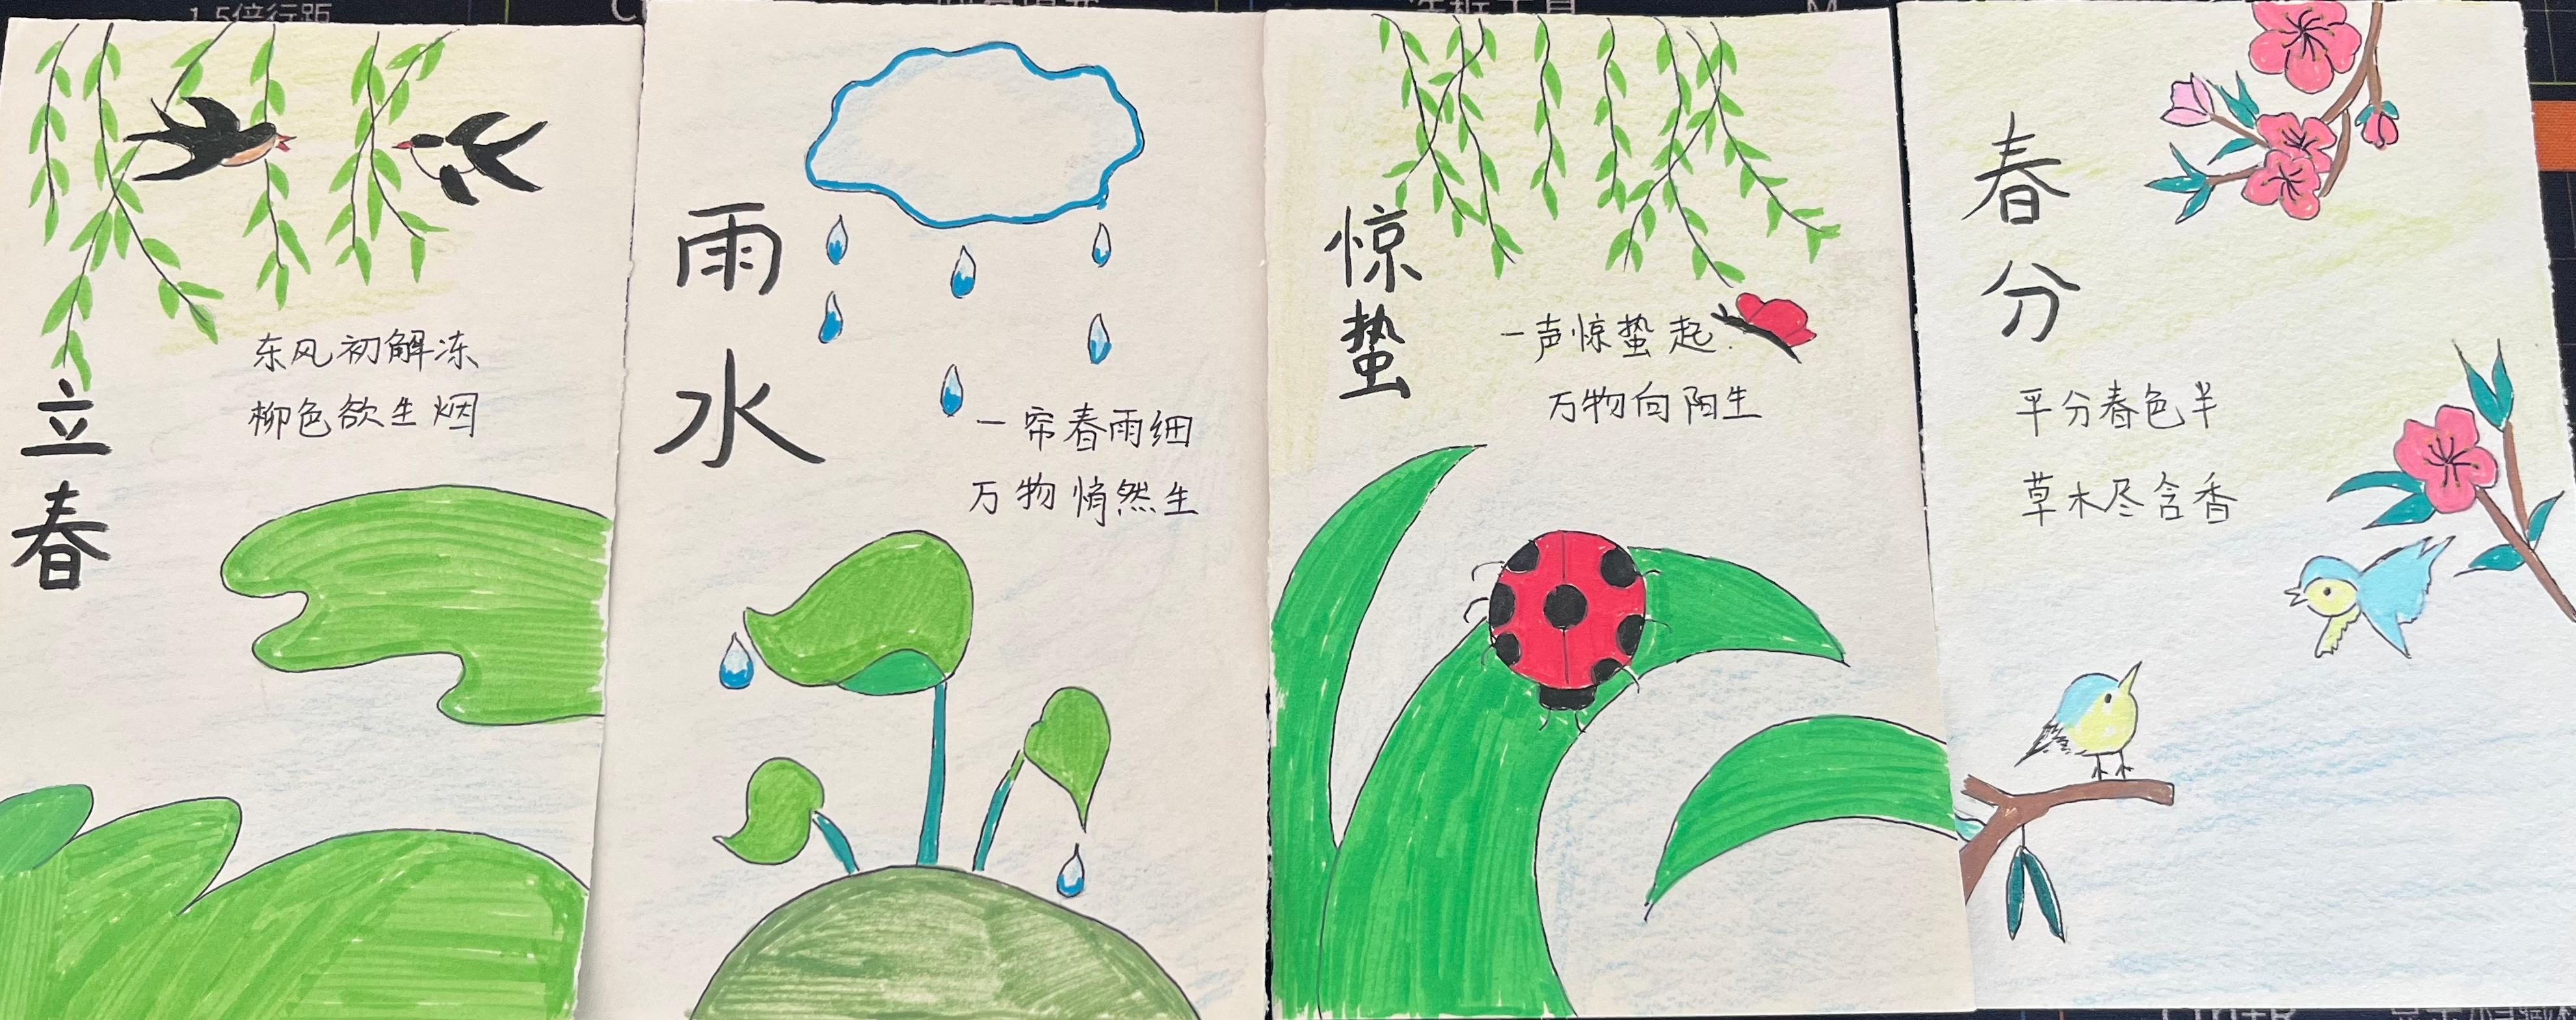 1.5倍行距
立春
东风初解冻
柳色欲生烟
雨水
一帘春雨细
万物悄然生
惊蛰
一声惊蛰起.
万物向阳生
春分
平分春色半
草木尽含香